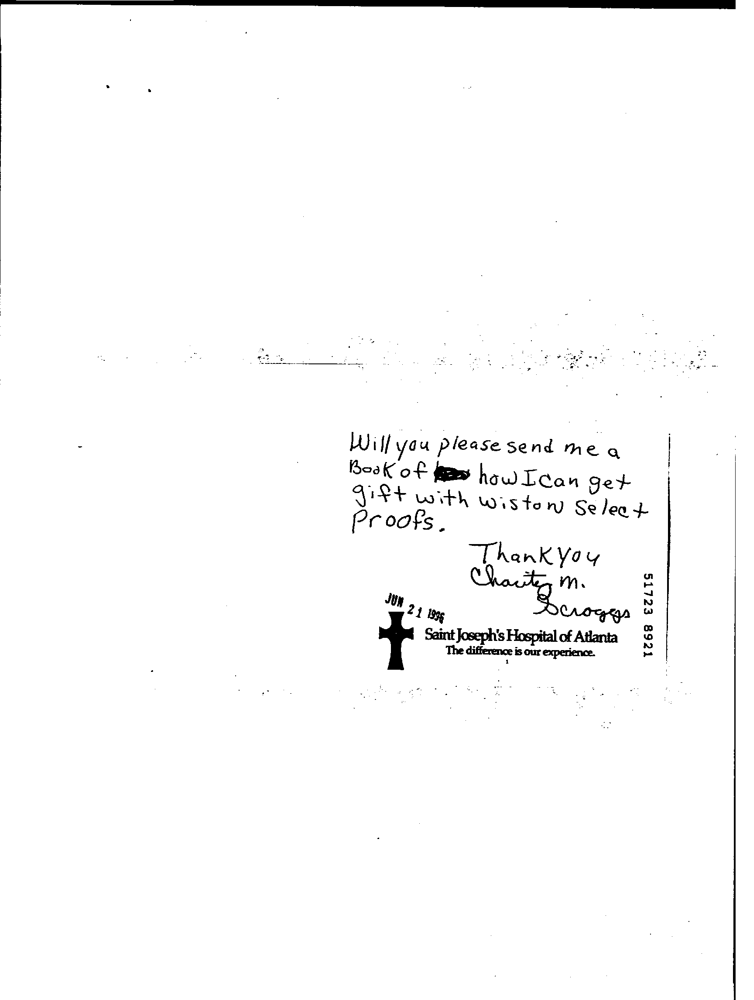 Will you please send me a
Book of how I can get
gift with wiston Select
Proofs.
Thank You
Charity M.
Scroggs
JUN 21 1996
Saint Joseph's Hospital of Atlanta
The difference is our experience.
51723 8921